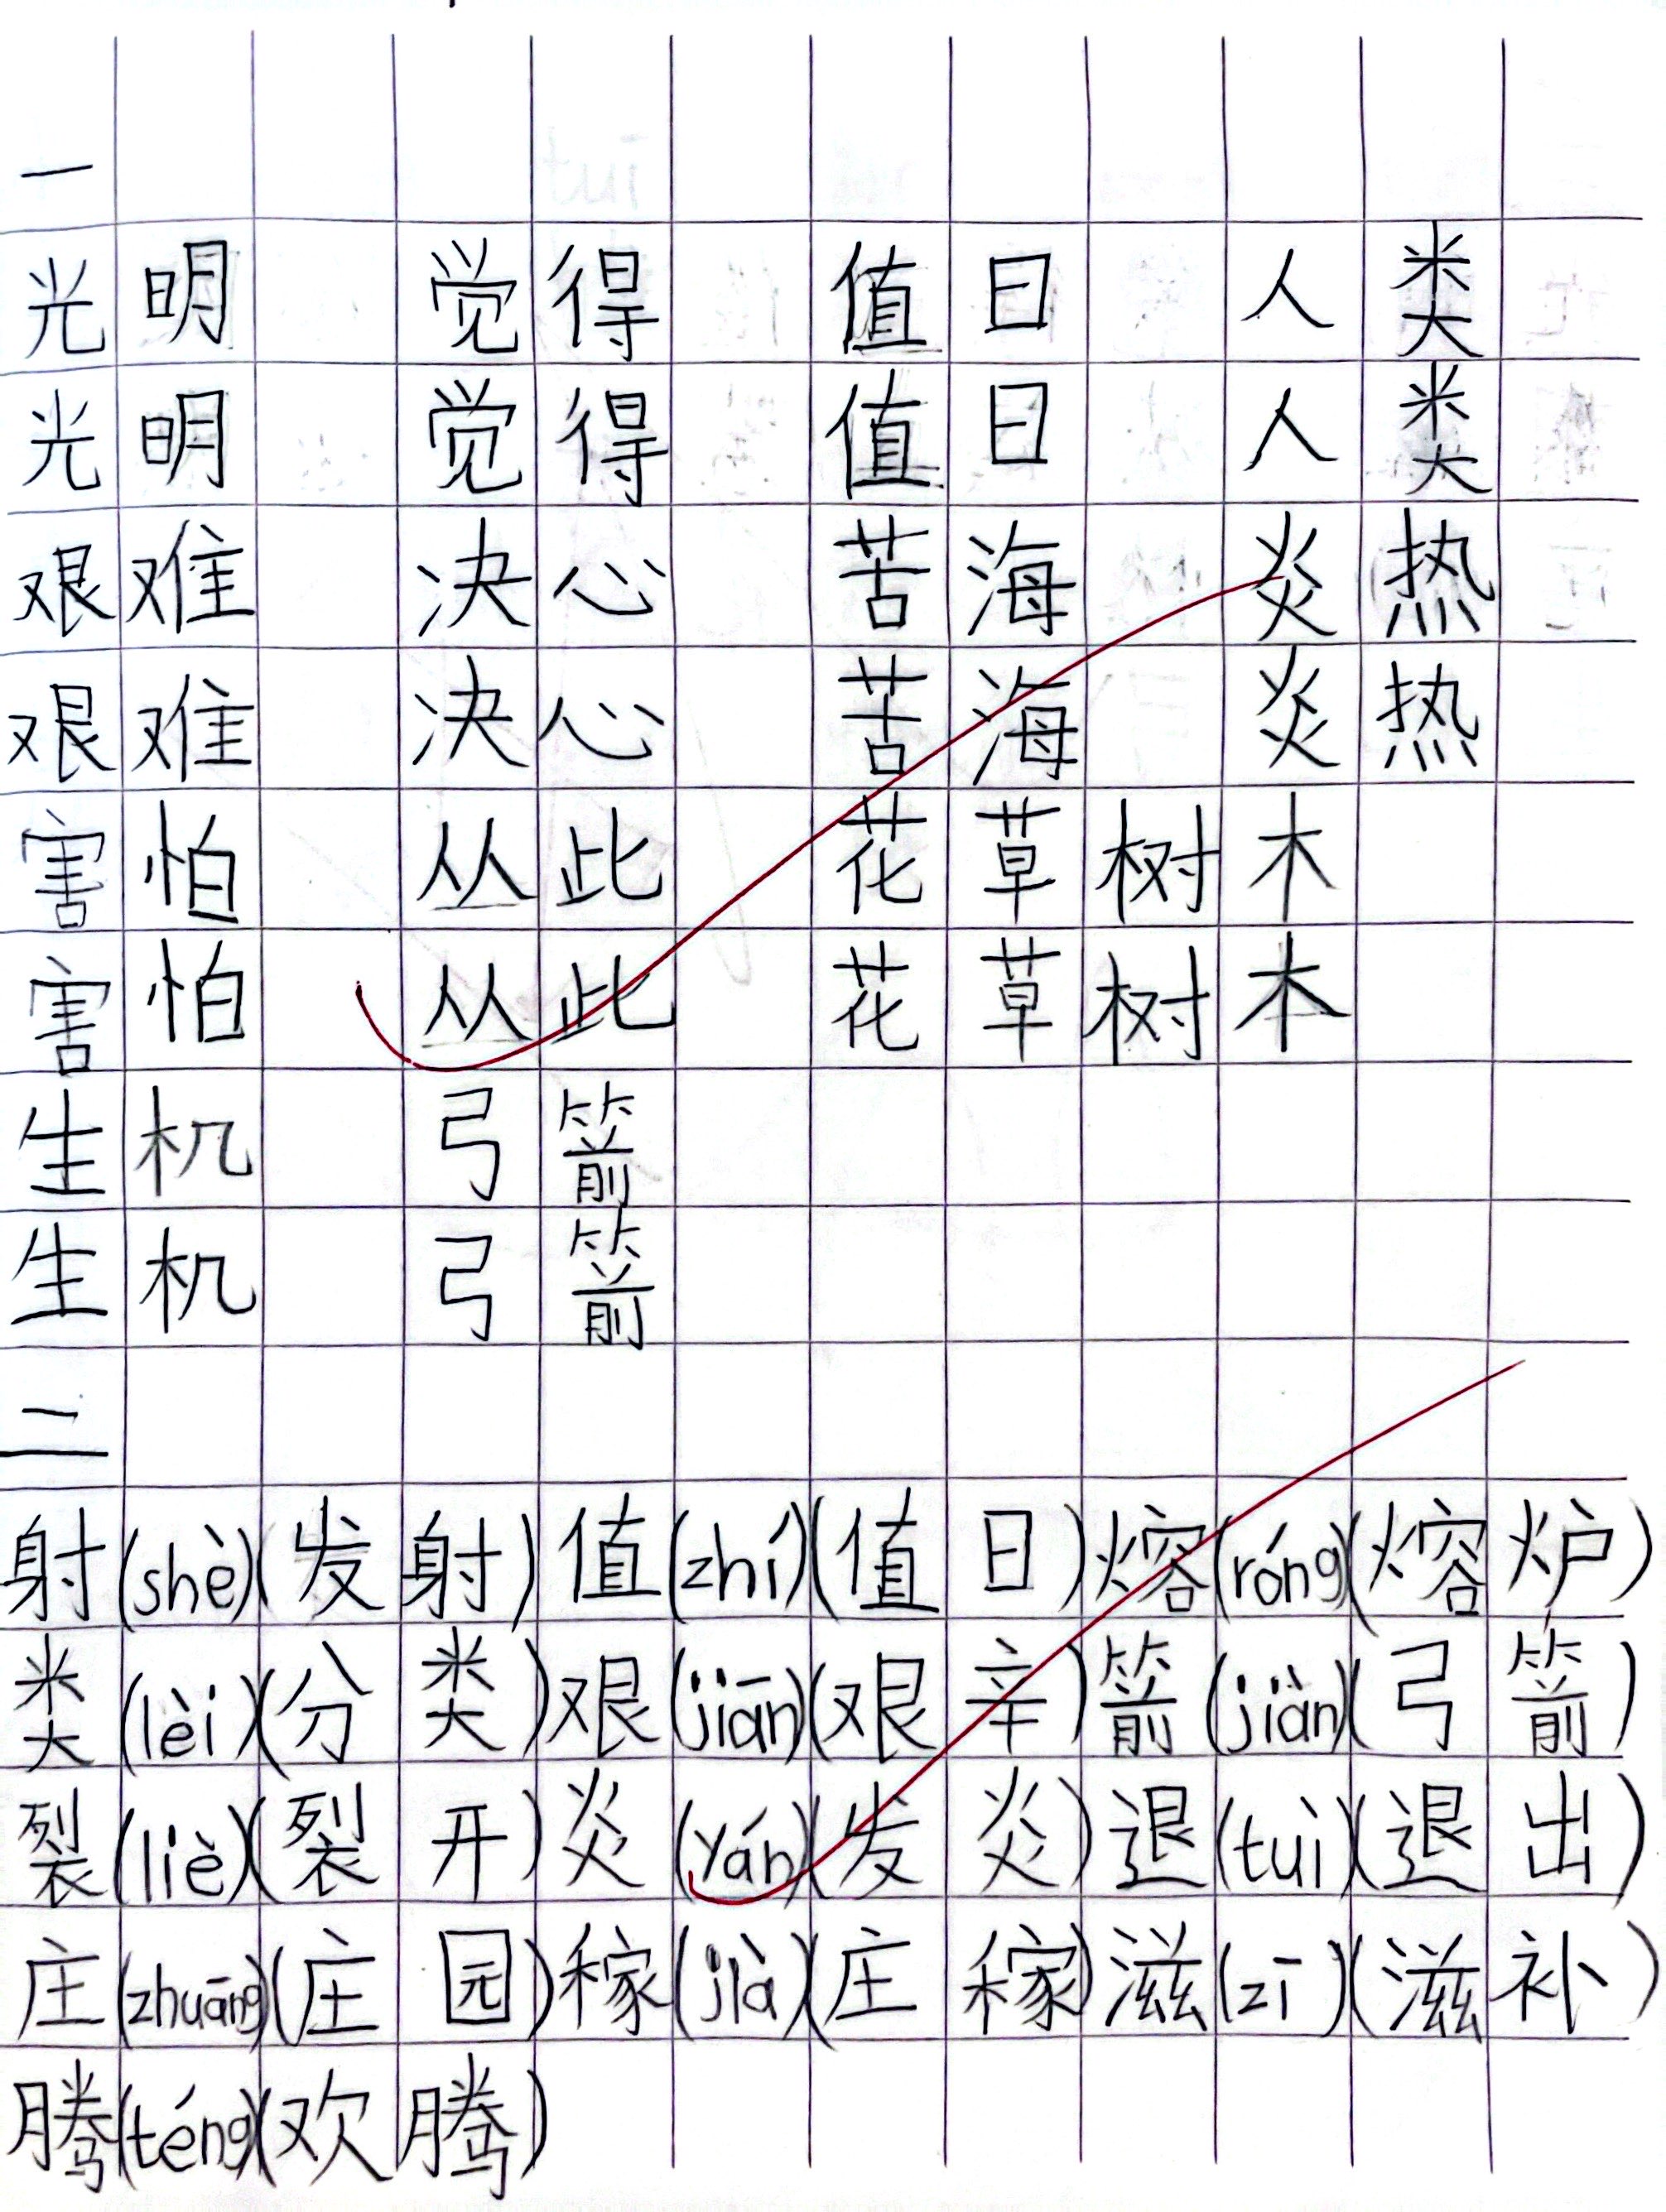 一
光明 觉得 值日 人类
光明 觉得 值日 人类
艰难 决心 苦海 炎热
艰难 决心 苦海 炎热
害怕 丛此 花草树木
害怕 丛此 花草树本
生机 弓箭
生机 弓箭
二
射(shè)(发射)值(zhí)(值日)熔(róng)(熔炉)
类(lèi)(分类)艰(jiān)(艰辛)箭(jiàn)(弓箭)
裂(liè)(裂开)炎(yán)(发炎)退(tuì)(退出)
庄(zhuāng)(庄园)稼(jià)(庄稼)滋(zī)(滋补)
腾(téng)(欢腾)